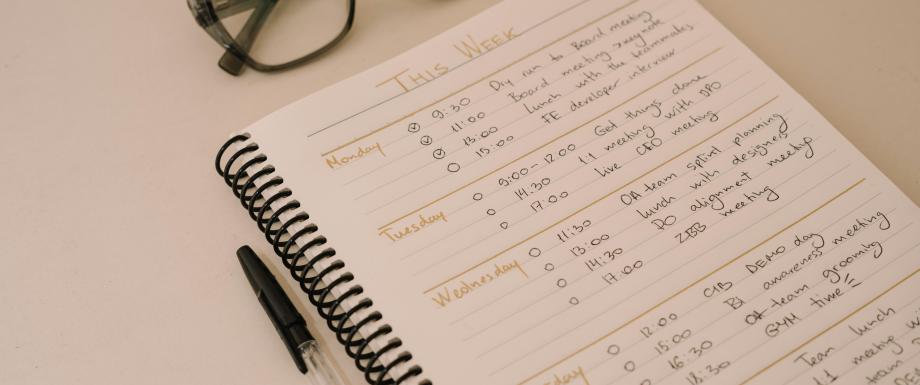 This Week
Monday
9:30 Dry run to Board meeting
11:00 Board meeting keynote
13:00 Lunch with the teammates
15:00 FE developer interview
Tuesday
9:00-12:00 Get things done
14:30 1:1 meeting with
17:00 Live CEO meeting
Wednesday
11:30 QA team sprint planning
13:00 lunch with designer
14:30 PO alignment meetup
17:00 ZBB meeting
12:00 DEMO day
15:00 BI awareness meeting
16:30 QA team grooming
18:30 GYM time
Team lunch
1:1 meeting
team